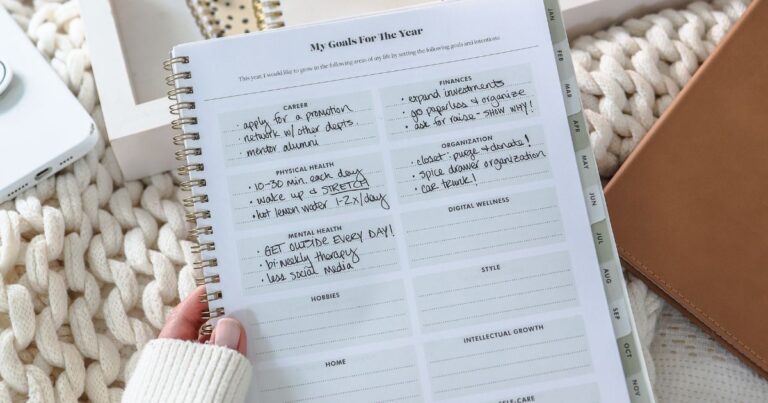 My Goals For The Year
This year I would like to grow in the following areas of my life by setting the following goals and intentions.
CAREER
• apply for a promotion
• network w/ other depts
• mentor alumni
FINANCES
• expand investments
• go paperless & organize
• ask for raise - SHOW WHY!
PHYSICAL HEALTH
• 10-30 min. each day
• wake up & STRETCH
• hot lemon water 1-2x/day
ORGANIZATION
• closet: purge & donate!
• spice drawer organization
• car trunk!
MENTAL HEALTH
• GET OUTSIDE EVERY DAY!
• bi-weekly therapy
• less social media
DIGITAL WELLNESS
HOBBIES
STYLE
HOME
INTELLECTUAL GROWTH
SELF-CARE
JAN
FEB
MAR
APR
MAY
JUN
JUL
AUG
SEP
OCT
NOV